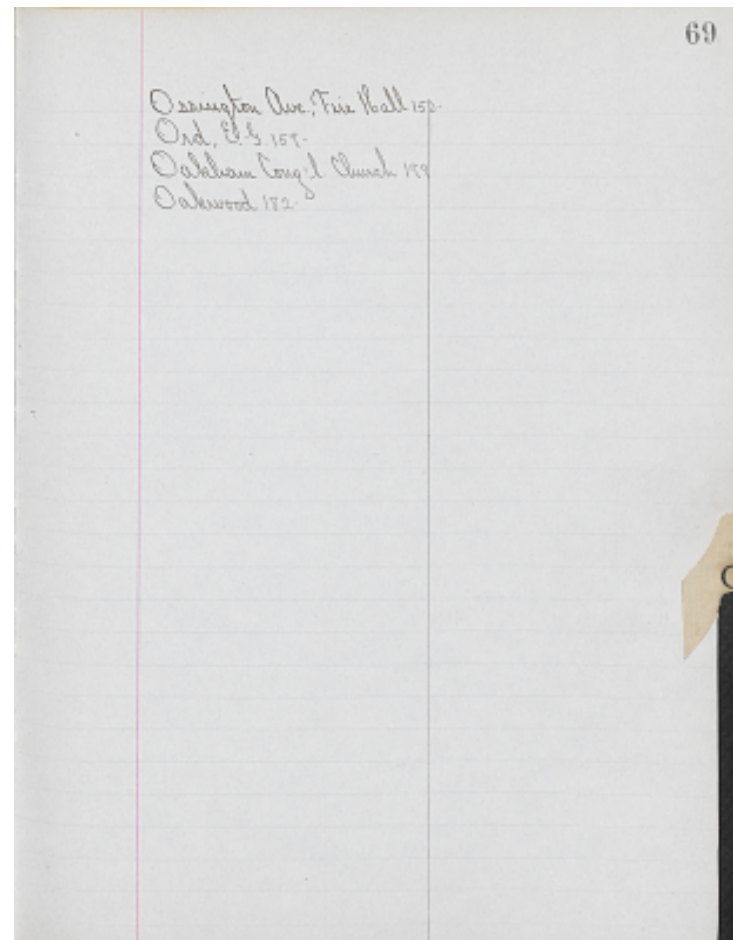 69
Ossington Ave., Fire Hall 150.
Ord, E.G.
Oakham Cong'l Church
Oakwood 182.
O